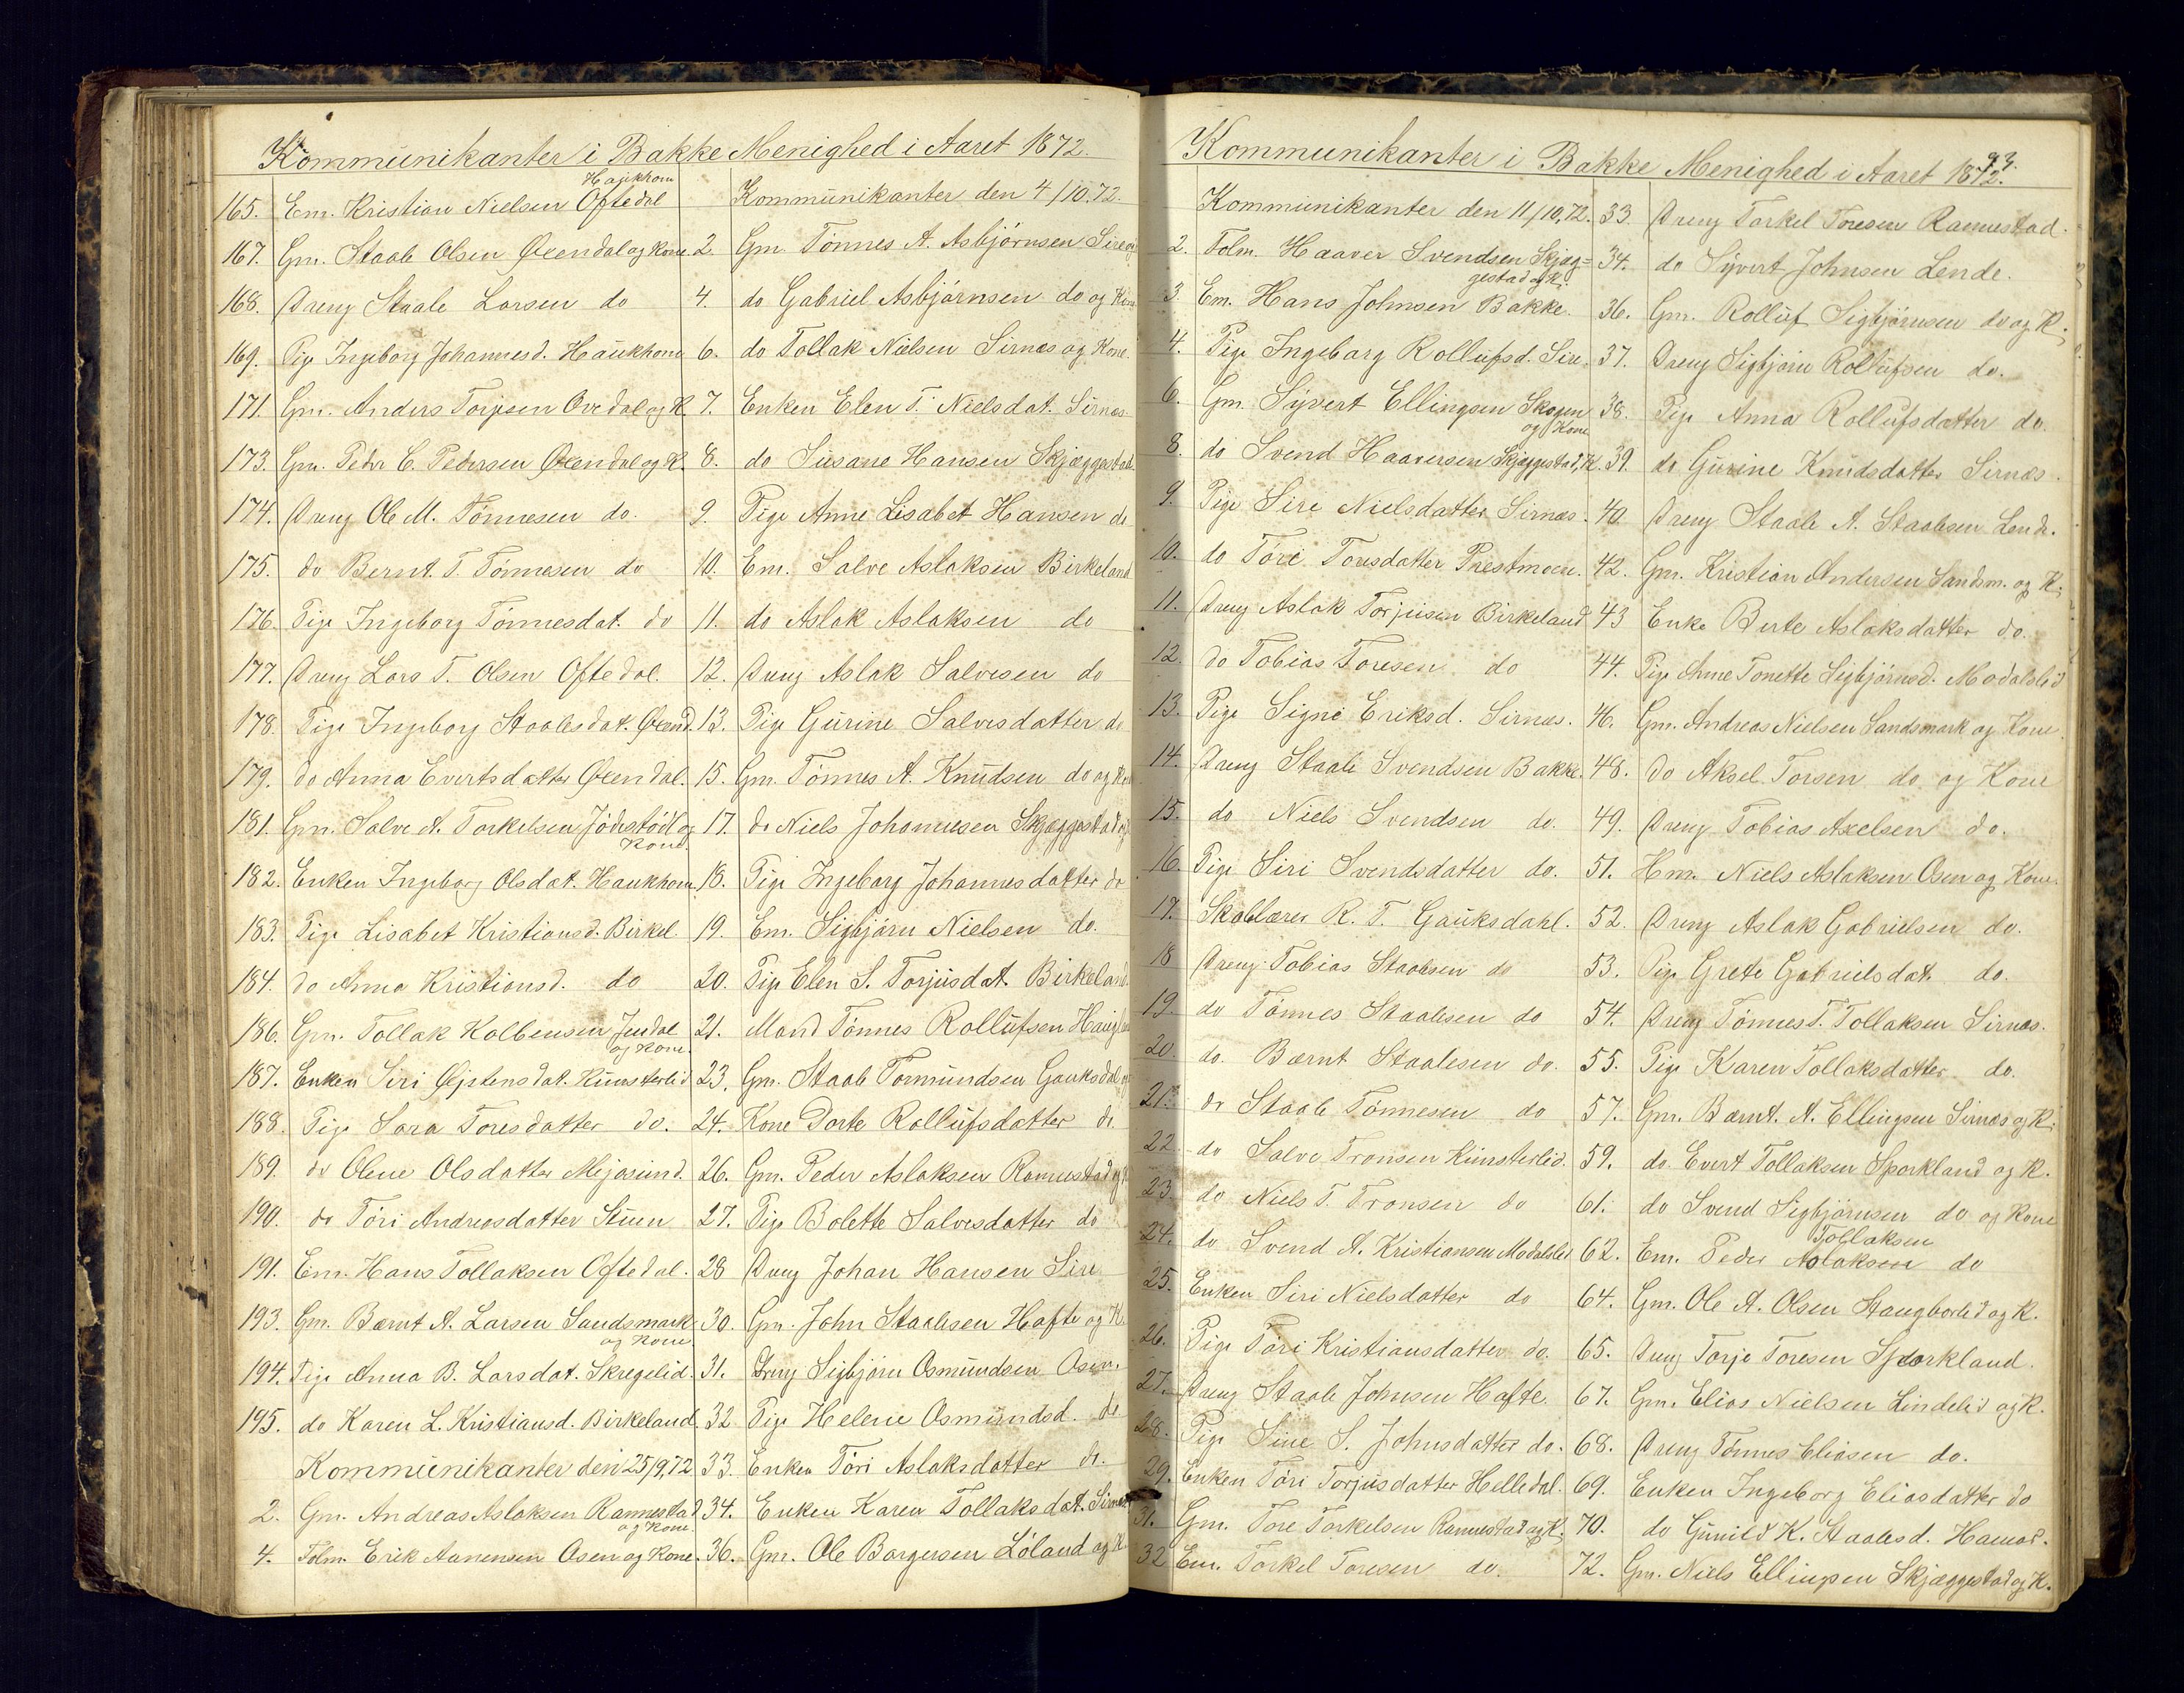 Kommunikanter i Bakke Menighed i Aaret 1872.
Haukhom
165. Em. Kristian Nielsen Oftedal
167. Gm. Staale Olsen Øxendal og Kone.
168. Dreng Staale Larsen do
169. Pige Ingeborg Johannesd. Haukhom
171. Gm. Anders Torjusen Ovedal og K.
173. Gm. Peder C. Pedersen Øxendal og K.
174. Dreng Ole M. Tönnesen do.
175. do Bernt. T. Tönnesen do
176. Pige Ingeborg Tönnesdat. do
177. Dreng Lars T. Olsen Oftedal.
178. Pige Ingeborg Staalesdat. Øxend.
179. do Anna Evertsdatter Øxendal.
181. Gm. Salve A. Torkelsen Jödestöl og
Kone.
182. Enken Ingeborg Olsdat. Haukhom.
183. Pige Lisabet Kristiansd. Birkel.
184. do Anna Kristiansd. do
186. Gm. Tollak Kolbensen
og Kone.
187. Enken Siri Øistensdat. Kumsterlid
188. Pige Sara Toresdatter do.
189. do Olene Olsdatter Mejasund.
190. do Töri Andreasdatter Stuen
191. Em. Hans Tollaksen Oftedal.
193. Gm. Bærnt A. Larsen Sandsmark
og Kone.
194. Pige Anna B. Larsdat. Skregelid.
195. do Karen L. Kristiansd. Birkeland
Kommunikanter den 25/9,72
2. Gm. Andreas Aslaksen Ramnestad
og Kone
4. Folm. Erik Aanensen Osen og Kone.
Kommunikanter den 4/10.72.
2. Gm Tönnes A. Asbjörnsen Sire og
4. do Gabriel Asbjörnsen do og Kone
6. do Tollak Nielsen Sirnæs og Kone.
7. Enken Elen T. Nielsdat. Sirnæs
8. do Susane Hansen Skjæggestad.
9. Pige Anne Lisabet Hansen do
10. Em. Salve Aslaksen Birkeland
11. do Aslak Aslaksen do
12. Dreng Aslak Salvesen do
13. Pige Gurine Salvesdatter do
15. Gm. Tönnes A. Knudsen do og Kone
17. do Niels Johannesen Skjæggestad og
18. Pige Ingeborg Johannesdatter do
19. Em. Sigbjörn Nielsen do.
20. Pige Elen S. Torjusdat. Birkeland.
21. Mand Tönnes Rollufsen
23. Gm. Staale Tormundsen Gauksdal og
24. Kone Dorte Rollufsdatter do
26. Gm. Peder Aslaksen Ramnestad og K
27. Pige Bolette Salvesdatter do
28 Dreng Johan Hansen Sire
30. Gm. John Staalesen Hafte og K.
31. Dreng Sigbjörn Osmundsen Osen.
32 Pige Helene Osmundsd. do
33. Enken Töri Aslaksdatter do.
34. Enken Karen Tollaksdat. Sirnæs
36. Gm. Ole Borgersen Löland og K.
Kommunikanter i Bakke Menighed i Aaret 1872.
93.
Kommunikanter den 11/10,72.
2. Folm. Haaver Svendsen Skjæg=
gestad og K.
3 Em. Hans Johnsen Bakke.
4. Pige Ingeborg Rollufsd. Sire.
6. Gm. Syvert Ellingsen Skogen
og Kone
8. do Svend Haaversen Skjæggestad, K.
9. Pige Sire Nielsdatter Sirnæs.
10. do Töri Toresdatter Prestmoen.
11. Dreng Aslak Torjusen Birkeland
12. do Tobias Toresen do
13. Pige Signe Eriksd. Sirnæs.
14. Dreng Staale Svendsen Bakke.
15. do Niels Svendsen do.
16. Pige Siri Svendsdatter do.
17. Skolelærer R. T. Gauksdahl.
18 Dreng Tobias Staalesen do
19. do Tönnes Staalesen do
20. do. Bærnt Staalesen do.
21. do Staale Tönnesen do
22. do Salve Tronsen Kumsterlid.
23. do Niels T. Tronsen do
24. do Svend A. Kristiansen Modalslid
25. Enken Siri Nielsdatter do
26. Pige Töri Kristiansdatter do.
27. Dreng Staale Johnsen Hafte.
28. Pige Sine S. Johnsdatter do.
29. Enken Töri Torjusdatter Helledal.
31. Gm. Tore Torkelsen Ramnestad og K.
32 Em. Torkel Toresen do.
33. Dreng Torkel Toresen Ramnestad.
34. do Syvert Johnsen Lende.
36. Gm. Rolluf Sigbjörnsen do og K.
37. Dreng Sigbjörn Rollufsen do.
38. Pige Anna Rollufsdatter do.
39. do Gurine Knudsdatter Sirnæs.
40. Dreng Staale A. Staalesen Lende.
42. Gm. Kristian Andersen Sandsm. og K.
43 Enke Berte Aslaksdatter do.
44. Pige Anne Tonette Sigbjörnsd. Modalslid
46. Gm. Andreas Nielsen Sandsmark og Kone.
48. do Aksel Torsen do. og Kone
49. Dreng Tobias Axelsen do.
51. Hm. Niels Aslaksen Osen og Kone.
52. Dreng Aslak Gabrielsen do.
53. Pige Grete Gabrielsdat. do.
54. Dreng Tönnes T. Tollaksen Sirnæs.
55. Pige Karen Tollaksdatter do.
57. Gm. Bærnt. A. Ellingsen Sirnæs og K.
59. do. Evert Tollaksen Sporkland og K.
61. do Svend Sigbjörnsen do og Kone
Tollaksen
62. Em. Peder Aslaksen do
64. Gm. Ole A. Olsen Haugborlid og K.
65. Dreng Torje Toresen Sporkland.
67. Gm. Elias Nielsen Lindelid og K.
68. Dreng Tönnes Eliasen do.
69. Enken Ingeborg Eliasdatter do
70. do Gunild K. Staalesd.
72. Gm. Niels Ellingsen Skjæggestad og K.